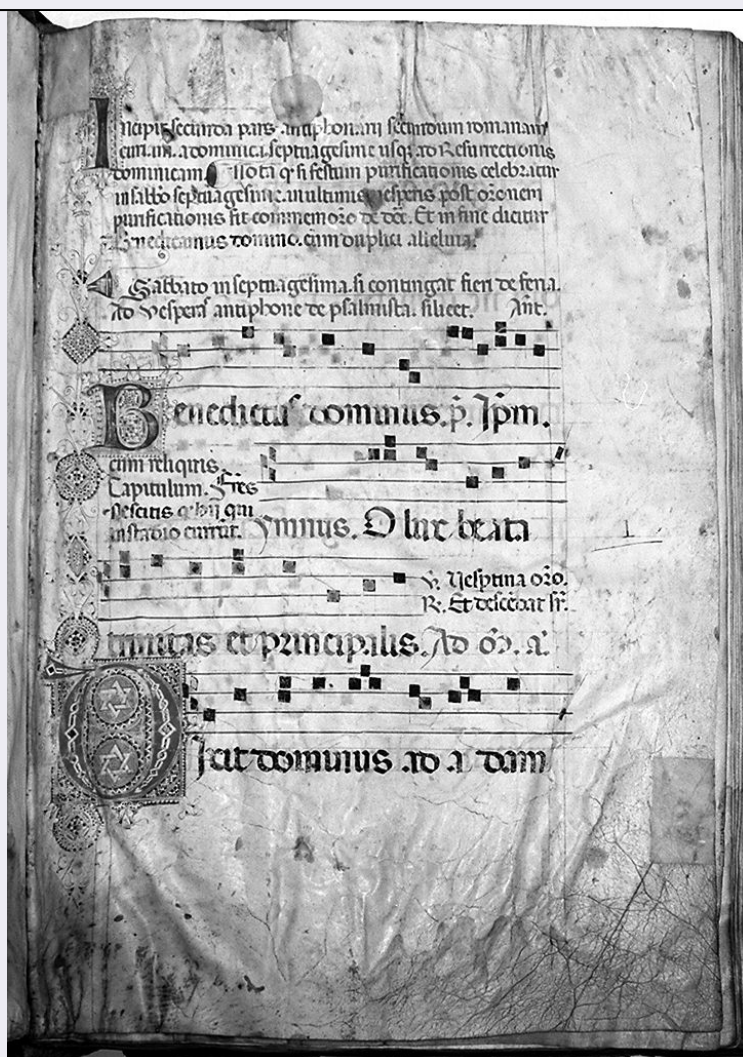 Incipit secunda pars antiphonarij secundum romanam
curiam. a dominica septuagesime usq; ad Resurrectionis
dominicam. Nota q̃ si festum purificationis celebratur
in sabbō septuagesime. in ultimis vesperis post orōnem
purificationis fit commemorō de dēe. Et in fine dicitur
Benedicamus domino. cum duplici alleluia.
Sabbato in septuagesima. si contingat fieri de feria.
Ad vesperas antiphone de psalmista. scilicet. Ant.
Benedictus dominus. p̄. Ip̄m.
cum reliquis
Capitulum. Fr̄es
Nescitis q̃ hij qui
in stadio currūt. Ymnus. O lux beata
V̄. Vesptina orō.
R̄. Et descēdat sr̄.
trinitas et principalis. Ad
Dixit dominus ad adam
I